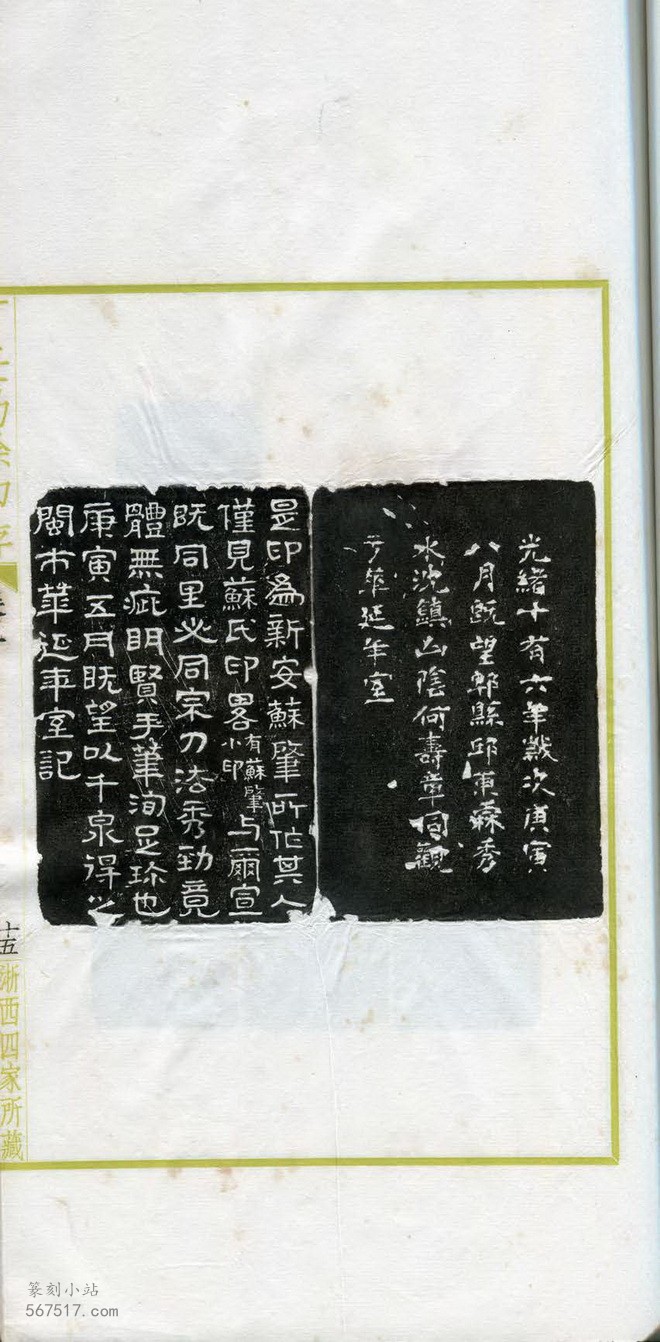 光緒十有六年歲次庚寅
八月既望鄞縣邱東霖秀
水沈鎮山陰何壽章同觀
于華延年室
是印為新安蘇肇所作其人
僅見蘇氏印畧有蘇肇小印与爾宣
既同里必同宗刀法秀勁竟
體無疵明賢手筆洵足珍也
庚寅五月既望以千泉得之
閩市華延年室記
十五
浙西四家所藏
篆刻小站
567517.com